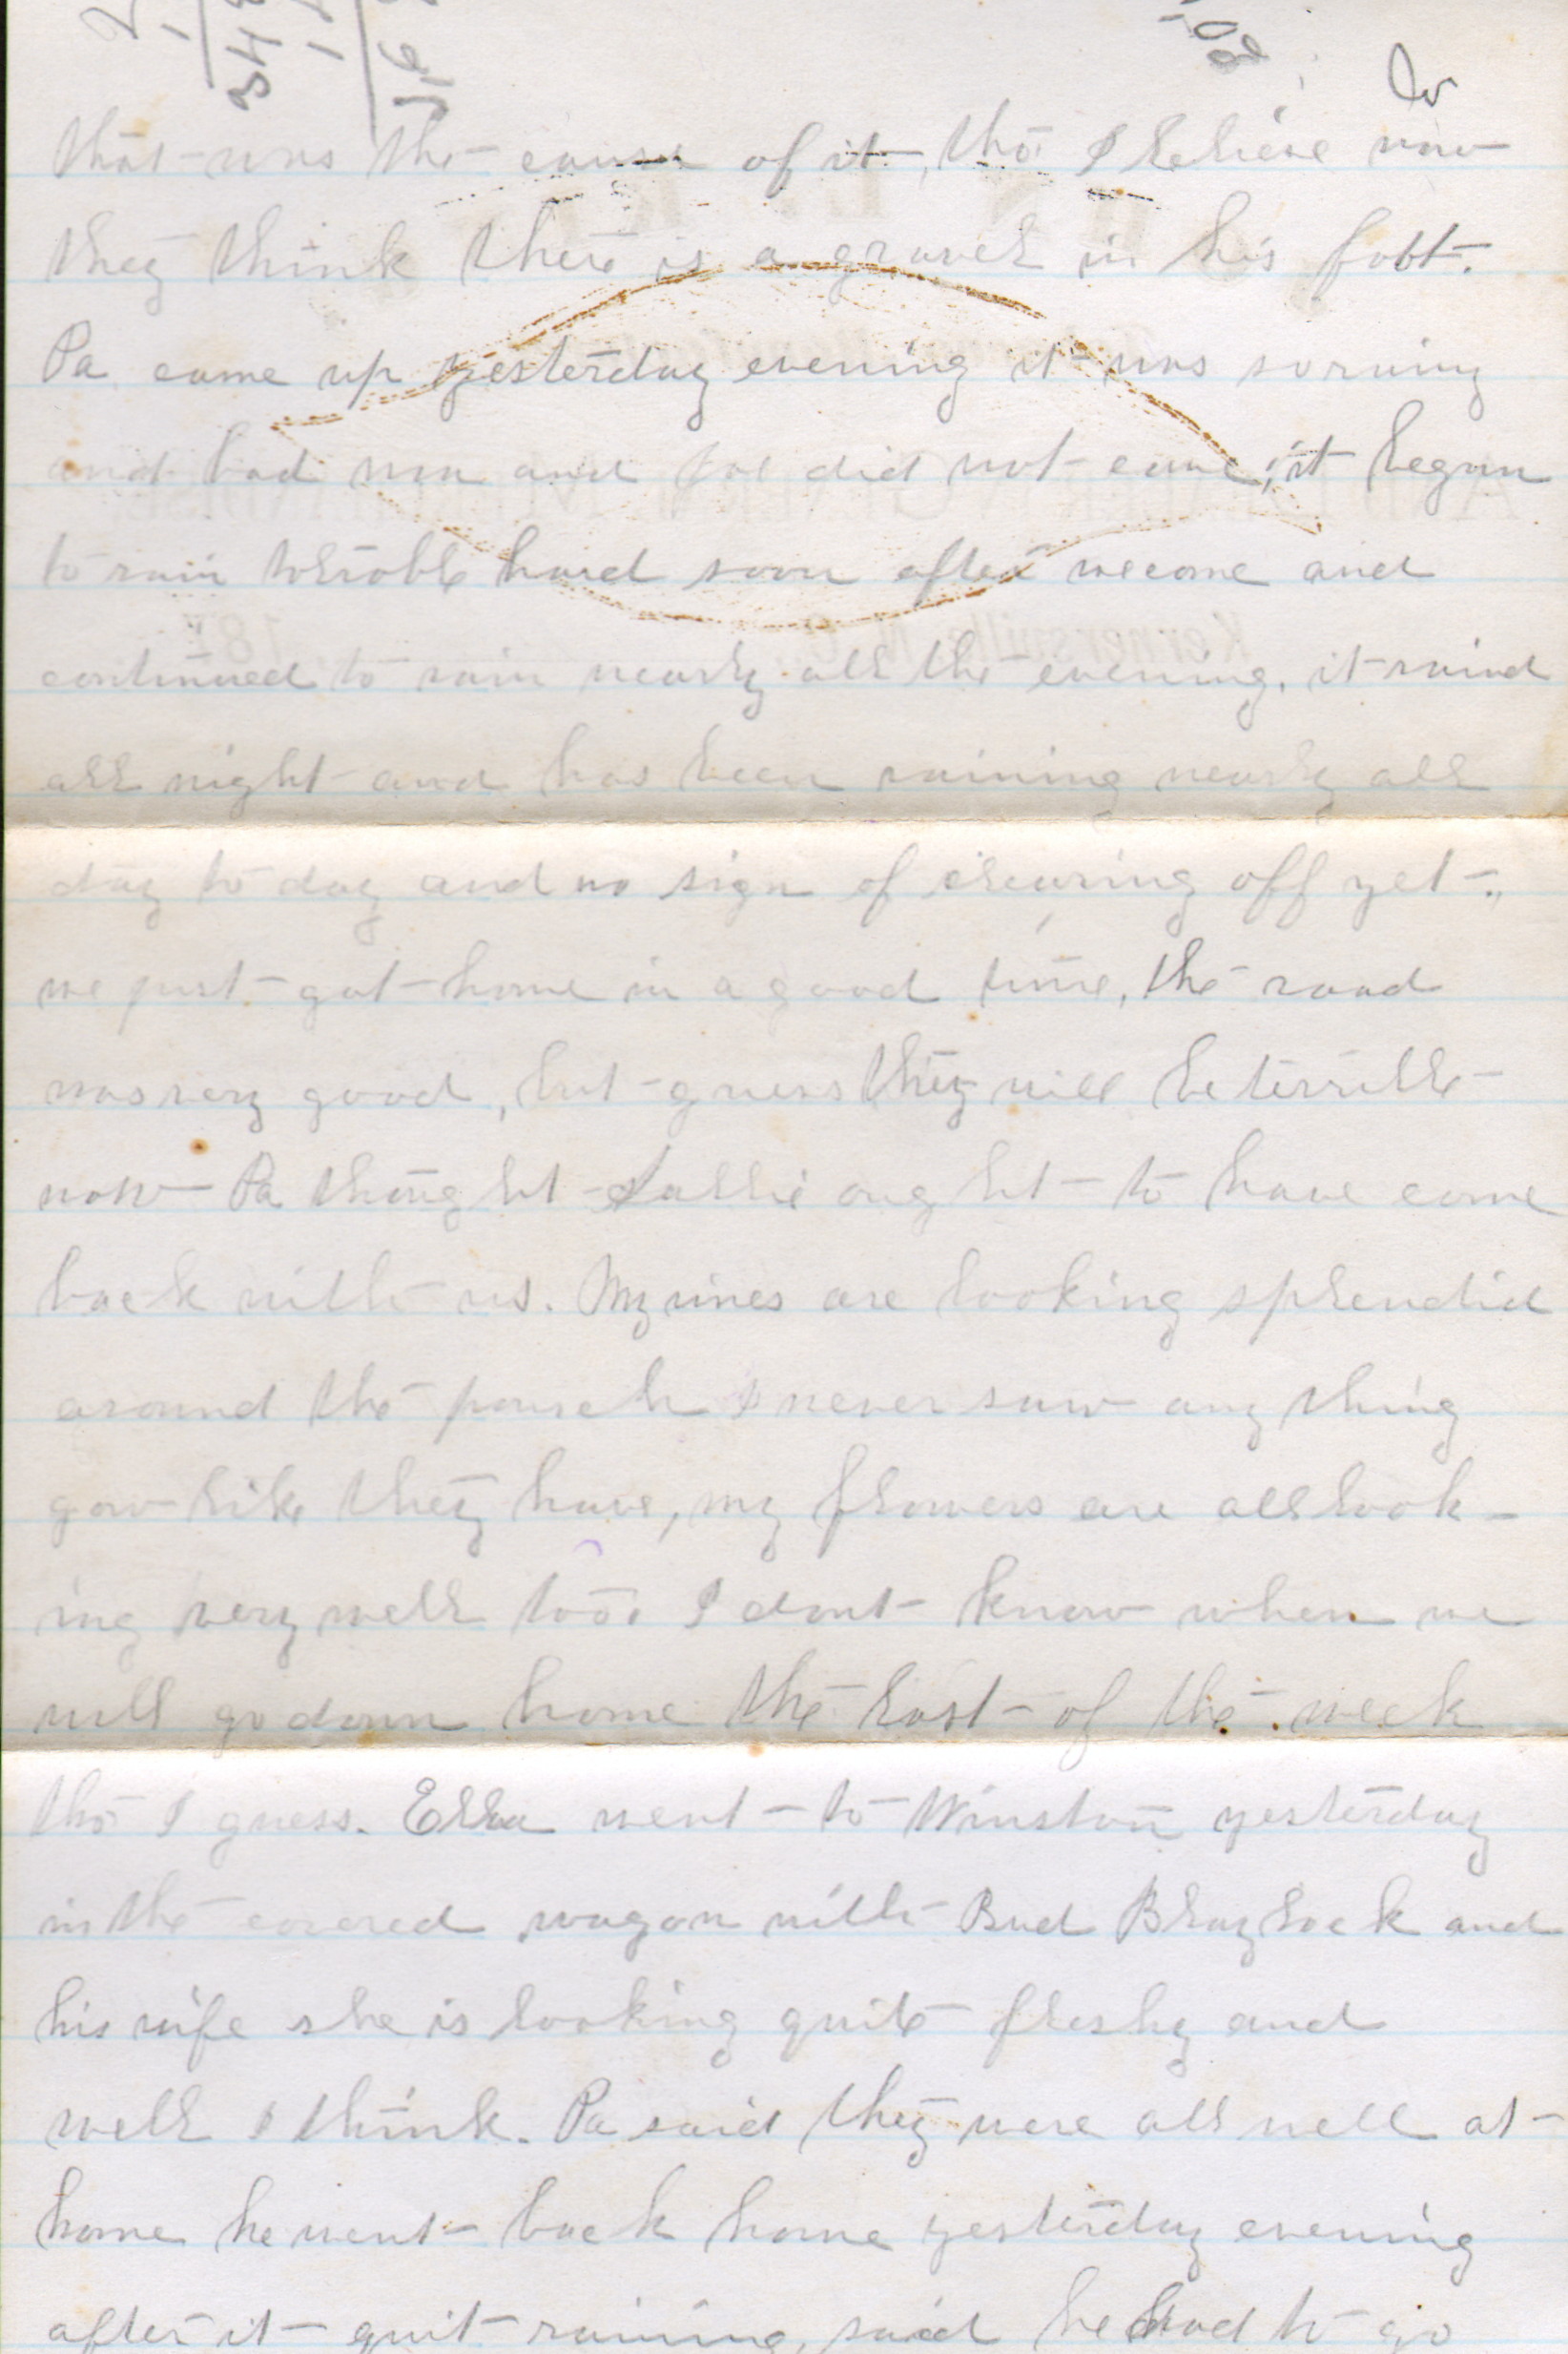 that was the cause of it, tho I believe now
they think there is a gravel in his foot.
Pa came up yesterday evening it was so rainy
and bad ma and did not come, it began
to rain terrible hard soon after we come and
continued to rain nearly all the evening. it raind
all night and has been raining nearly all
day to day and no sign of clearing off yet.,
we just got home in a good time, the road
was very good, but guess they will be terrible
now Pa thought Sallie ought to have come
back with us. My vines are looking splendid
around the pourch I never saw any thing
gow like they have, my flowers are all look-
ing very well too. I dont know when we
will go down home the last of the week
tho I guess. Ella went to Winston yesterday
in the covered wagon with Bud Blaylock and
his wife she is looking quite fleshy and
well I think. Pa said they were all well at
home he went back home yesterday evening
after it quit raining, said he had to go